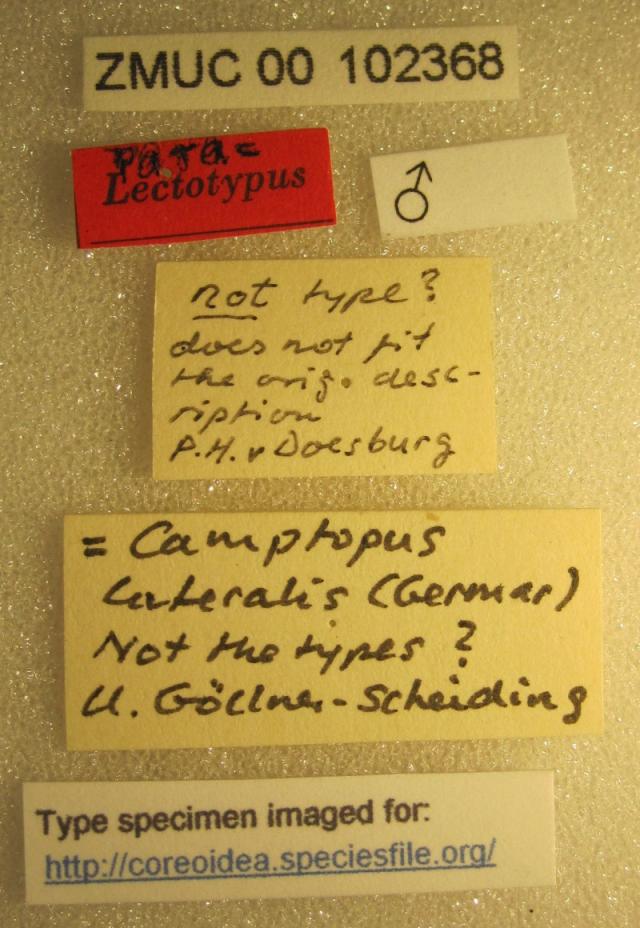 ZMUC 00 102368
Para=
Lectotypus
♂
not type?
does not fit
the orig. desc-
ription
P.H. v Doesburg
= Camptopus
Lateralis (Germar)
Not the types ?
U. Göllner-Scheiding
Type specimen imaged for:
http://coreoidea.speciesfile.org/